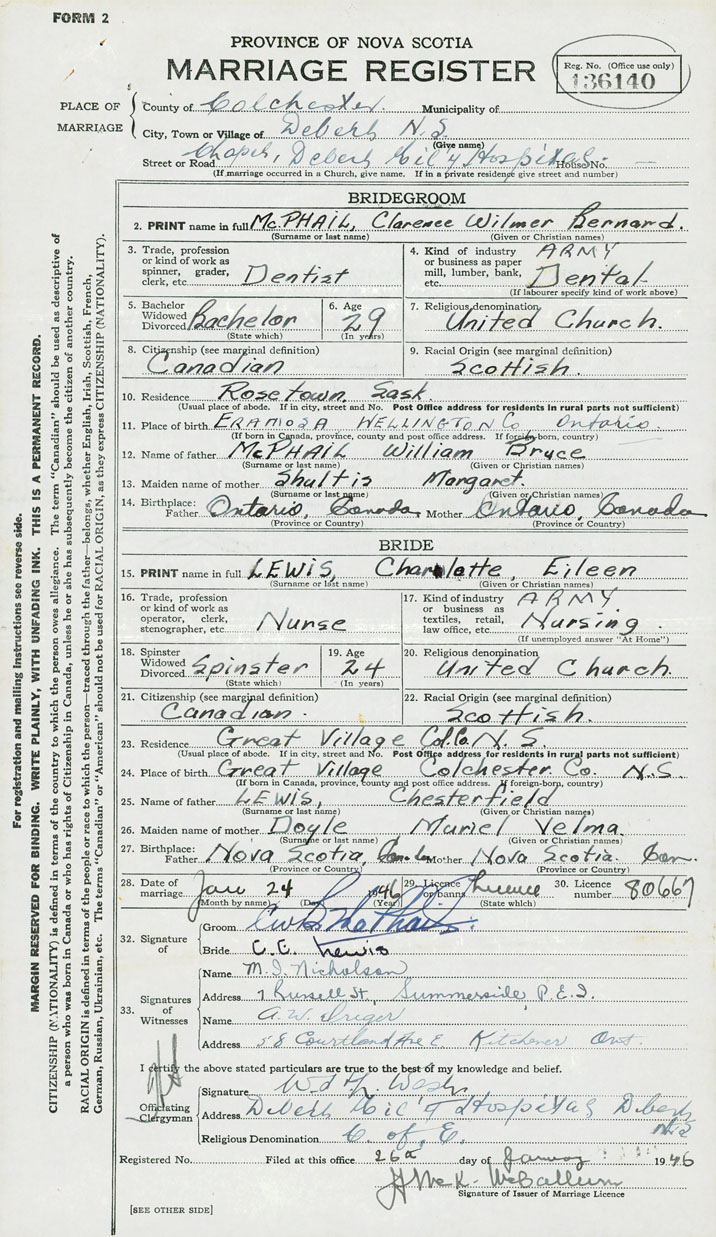 FORM 2
PROVINCE OF NOVA SCOTIA
MARRIAGE REGISTER
Reg. No. (Office use only)
136140
PLACE OF MARRIAGE
County of Colchester. Municipality of
City, Town or Village of Debert N.S.
(Give name)
Street or Road Chapel, Debert Mil'y Hospital House No. —
(If marriage occurred in a Church, give name. If in a private residence give street and number)
BRIDEGROOM
2. PRINT name in full McPHAIL, Clarence Wilmer Bernard.
(Surname or last name) (Given or Christian names)
3. Trade, profession or kind of work as spinner, grader, clerk, etc. Dentist
4. Kind of industry or business as paper mill, lumber, bank, etc. ARMY Dental
(If labourer specify kind of work above)
5. Bachelor Widowed Divorced Bachelor (State which)
6. Age 29 (In years)
7. Religious denomination United Church.
8. Citizenship (see marginal definition) Canadian
9. Racial Origin (see marginal definition) Scottish.
10. Residence Rosetown Sask.
(Usual place of abode. If in city, street and No. Post Office address for residents in rural parts not sufficient)
11. Place of birth ERAMOSA WELLINGTON Co Ontario.
(If born in Canada, province, county and post office address. If foreign-born, country)
12. Name of father McPHAIL William Bruce
(Surname or last name) (Given or Christian names)
13. Maiden name of mother Shultis Margaret.
(Surname or last name) (Given or Christian names)
14. Birthplace: Father Ontario, Canada Mother Ontario, Canada
(Province or Country) (Province or Country)
BRIDE
15. PRINT name in full LEWIS, Charlotte, Eileen
(Surname or last name) (Given or Christian names)
16. Trade, profession or kind of work as operator, clerk, stenographer, etc. Nurse
17. Kind of industry or business as textiles, retail, law office, etc. ARMY Nursing.
(If unemployed answer "At Home")
18. Spinster Widowed Divorced Spinster (State which)
19. Age 24 (In years)
20. Religious denomination United Church.
21. Citizenship (see marginal definition) Canadian.
22. Racial Origin (see marginal definition) Scottish.
23. Residence Great Village Col. Co. N.S.
(Usual place of abode. If in city, street and No. Post Office address for residents in rural parts not sufficient)
24. Place of birth Great Village Colchester Co. N.S.
(If born in Canada, province, county and post office address. If foreign-born, country)
25. Name of father LEWIS, Chesterfield
(Surname or last name) (Given or Christian names)
26. Maiden name of mother Doyle Muriel Velma.
(Surname or last name) (Given or Christian names)
27. Birthplace: Father Nova Scotia, Canada Mother Nova Scotia. Can.
(Province or Country) (Province or Country)
28. Date of marriage Jan 24 1946
(Month by name) (Day) (Year)
29. Licence or banns Licence (State which)
30. Licence number 80667
32. Signature of
Groom CWB McPhail.
Bride C.E. Lewis
33. Signatures of Witnesses
Name M. I. Nicholson
Address 7 Russell St, Summerside, P.E.I.
Name A. W.
Address 58 Courtland Ave E Kitchener Ont.
I certify the above stated particulars are true to the best of my knowledge and belief.
Officiating Clergyman
Signature
Address Debert Mil'y Hospital Debert N.S.
Religious Denomination C. of E.
Registered No. Filed at this office 26th day of January 1946
McCallum
Signature of Issuer of Marriage Licence
[SEE OTHER SIDE]
For registration and mailing instructions see reverse side.
MARGIN RESERVED FOR BINDING. WRITE PLAINLY, WITH UNFADING INK. THIS IS A PERMANENT RECORD.
CITIZENSHIP (NATIONALITY) is defined in terms of the country to which the person owes allegiance. The term "Canadian" should be used as descriptive of
a person who was born in Canada or who has rights of Citizenship in Canada, unless he or she has subsequently become the citizen of another country.
RACIAL ORIGIN is defined in terms of the people or race to which the person—traced through the father—belongs, whether English, Irish, Scottish, French,
German, Russian, Ukrainian, etc. The terms "Canadian" or "American" should not be used for RACIAL ORIGIN, as they express CITIZENSHIP (NATIONALITY).